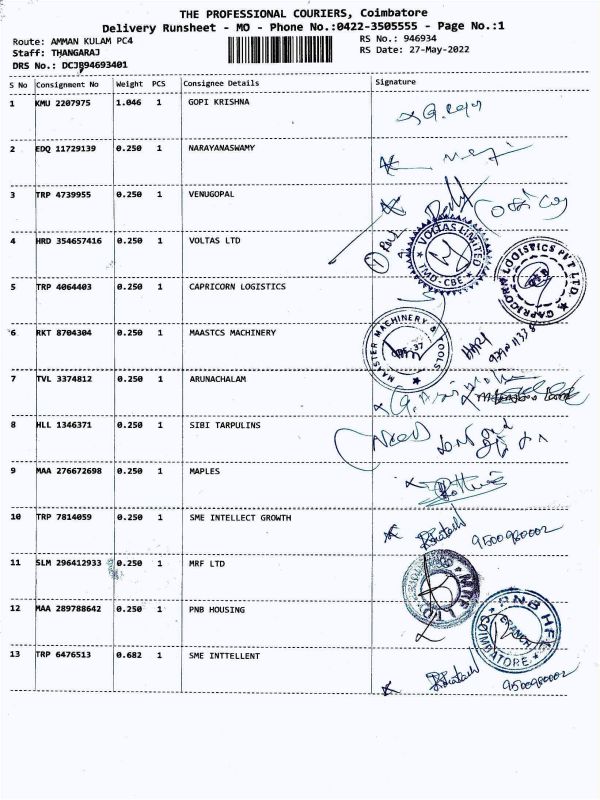 THE PROFESSIONAL COURIERS, Coimbatore
Delivery Runsheet - MO - Phone No.:0422-3505555 - Page No.:1
Route: AMMAN KULAM PC4
RS No.: 946934
Staff: THANGARAJ
RS Date: 27-May-2022
DRS No.: DCJB94693401
S No Consignment No Weight PCS Consignee Details Signature
1 KMU 2207975 1.046 1 GOPI KRISHNA
2 EDQ 11729139 0.250 1 NARAYANASWAMY
3 TRP 4739955 0.250 1 VENUGOPAL
4 HRD 354657416 0.250 1 VOLTAS LTD
VOLTAS LIMITED
TMD-CBE
5 TRP 4064403 0.250 1 CAPRICORN LOGISTICS
CAPRICORN LOGISTICS PVT LTD.
6 RKT 8704304 0.250 1 MAASTCS MACHINERY
MAASTER MACHINERY & TOOLS
CBE-37
HARI
7 TVL 3374812 0.250 1 ARUNACHALAM
8 HLL 1346371 0.250 1 SIBI TARPULINS
9 MAA 276672698 0.250 1 MAPLES
10 TRP 7814059 0.250 1 SME INTELLECT GROWTH
9500980002
11 SLM 296412933 0.250 1 MRF LTD
MRF LTD
12 MAA 289788642 0.250 1 PNB HOUSING
PNB HFL
BRANCH
COIMBATORE
13 TRP 6476513 0.682 1 SME INTTELLENT
9500980002